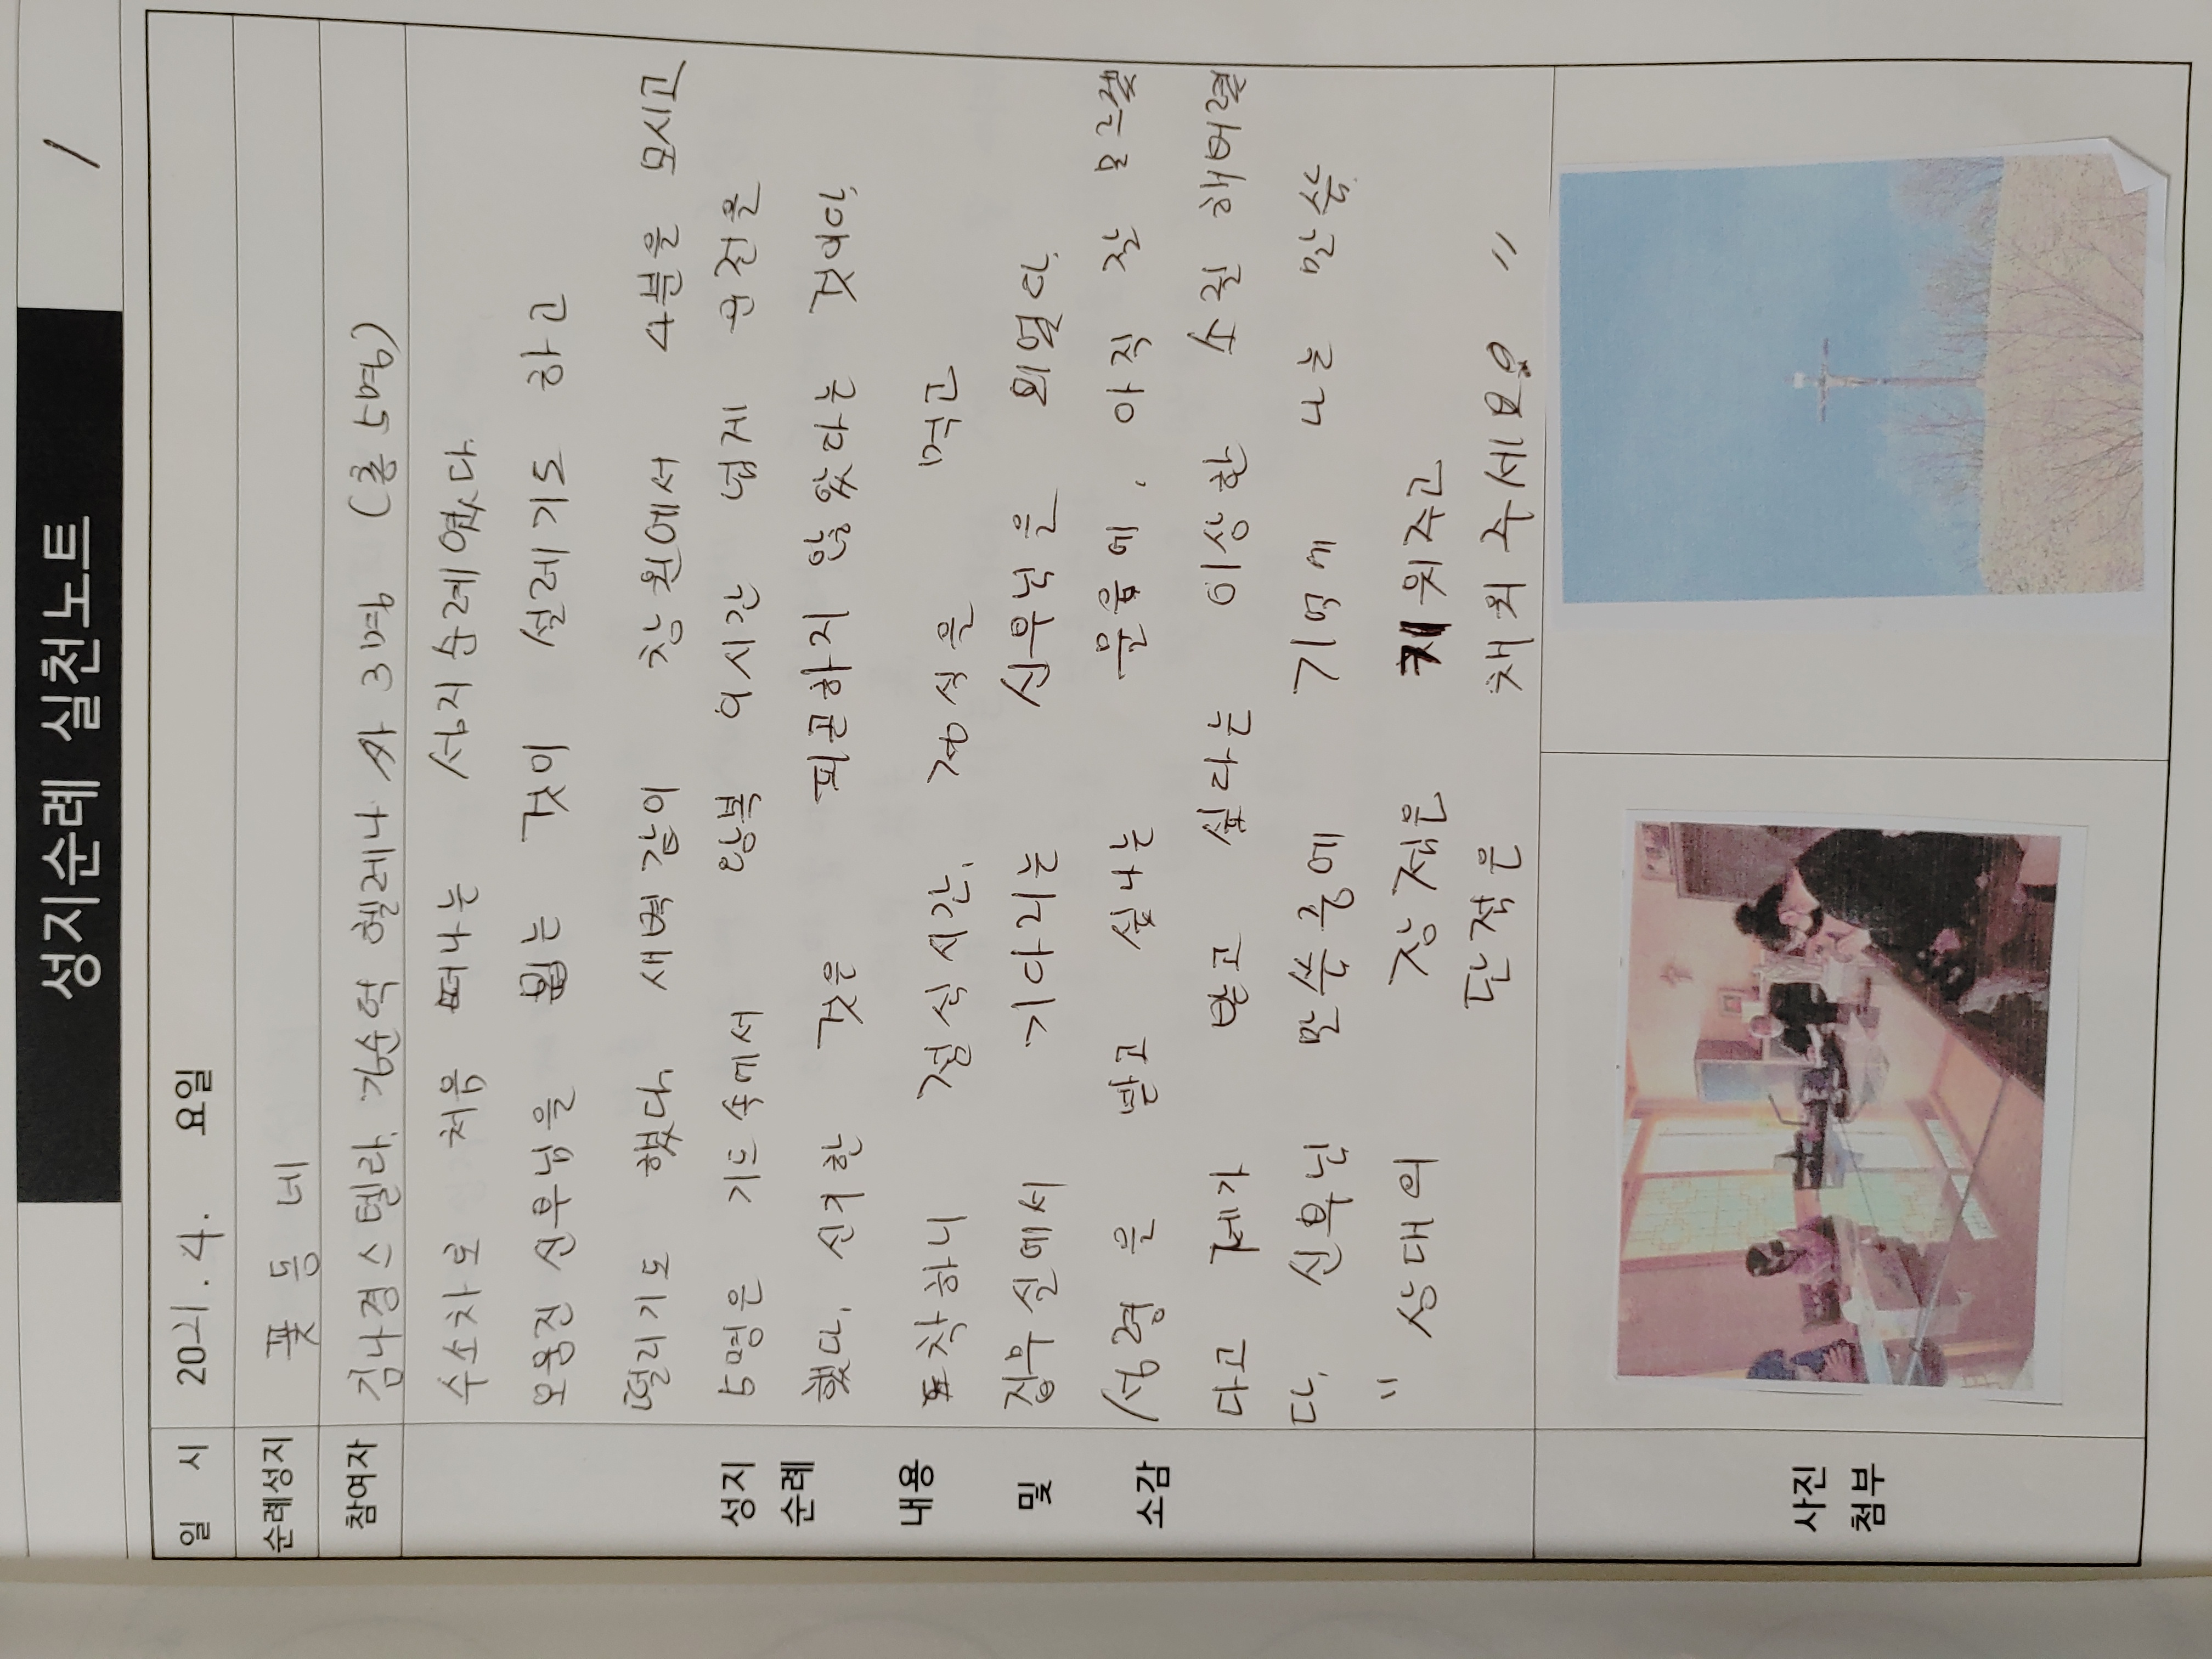 성지순례 실천노트
1
일 시 2021. 4. 요일
순례성지 꽃동네
참여자 김나경스텔라, 김순덕 헬레나 外 3명 (총 5명)
성지
순례
내용
및
소감
수소차로 처음 떠나는 성지순례였다.
오웅진 신부님을 뵙는 것이 설레기도 하고
떨리기도 했다. 새벽같이 창원에서 4분을 모시고
5명은 기도속에서 왕복 시간 넘게 운전을
했다. 신기한 것은 피곤하지 않았다는 것이다.
도착하니 점심시간, 점심을 먹고
집무실에서 기다리는 신부님을 뵈었다.
성령을 받고 싶냐는 물음에, 아직 잘 모르겠
다고 제가 받고 싶다는 이상한 소릴 해버렸
다. 신부님 말씀중에 기억에 나는 말씀
" 상대의 장점은 채워주고
단점은 채워주세요 "
사진
첨부